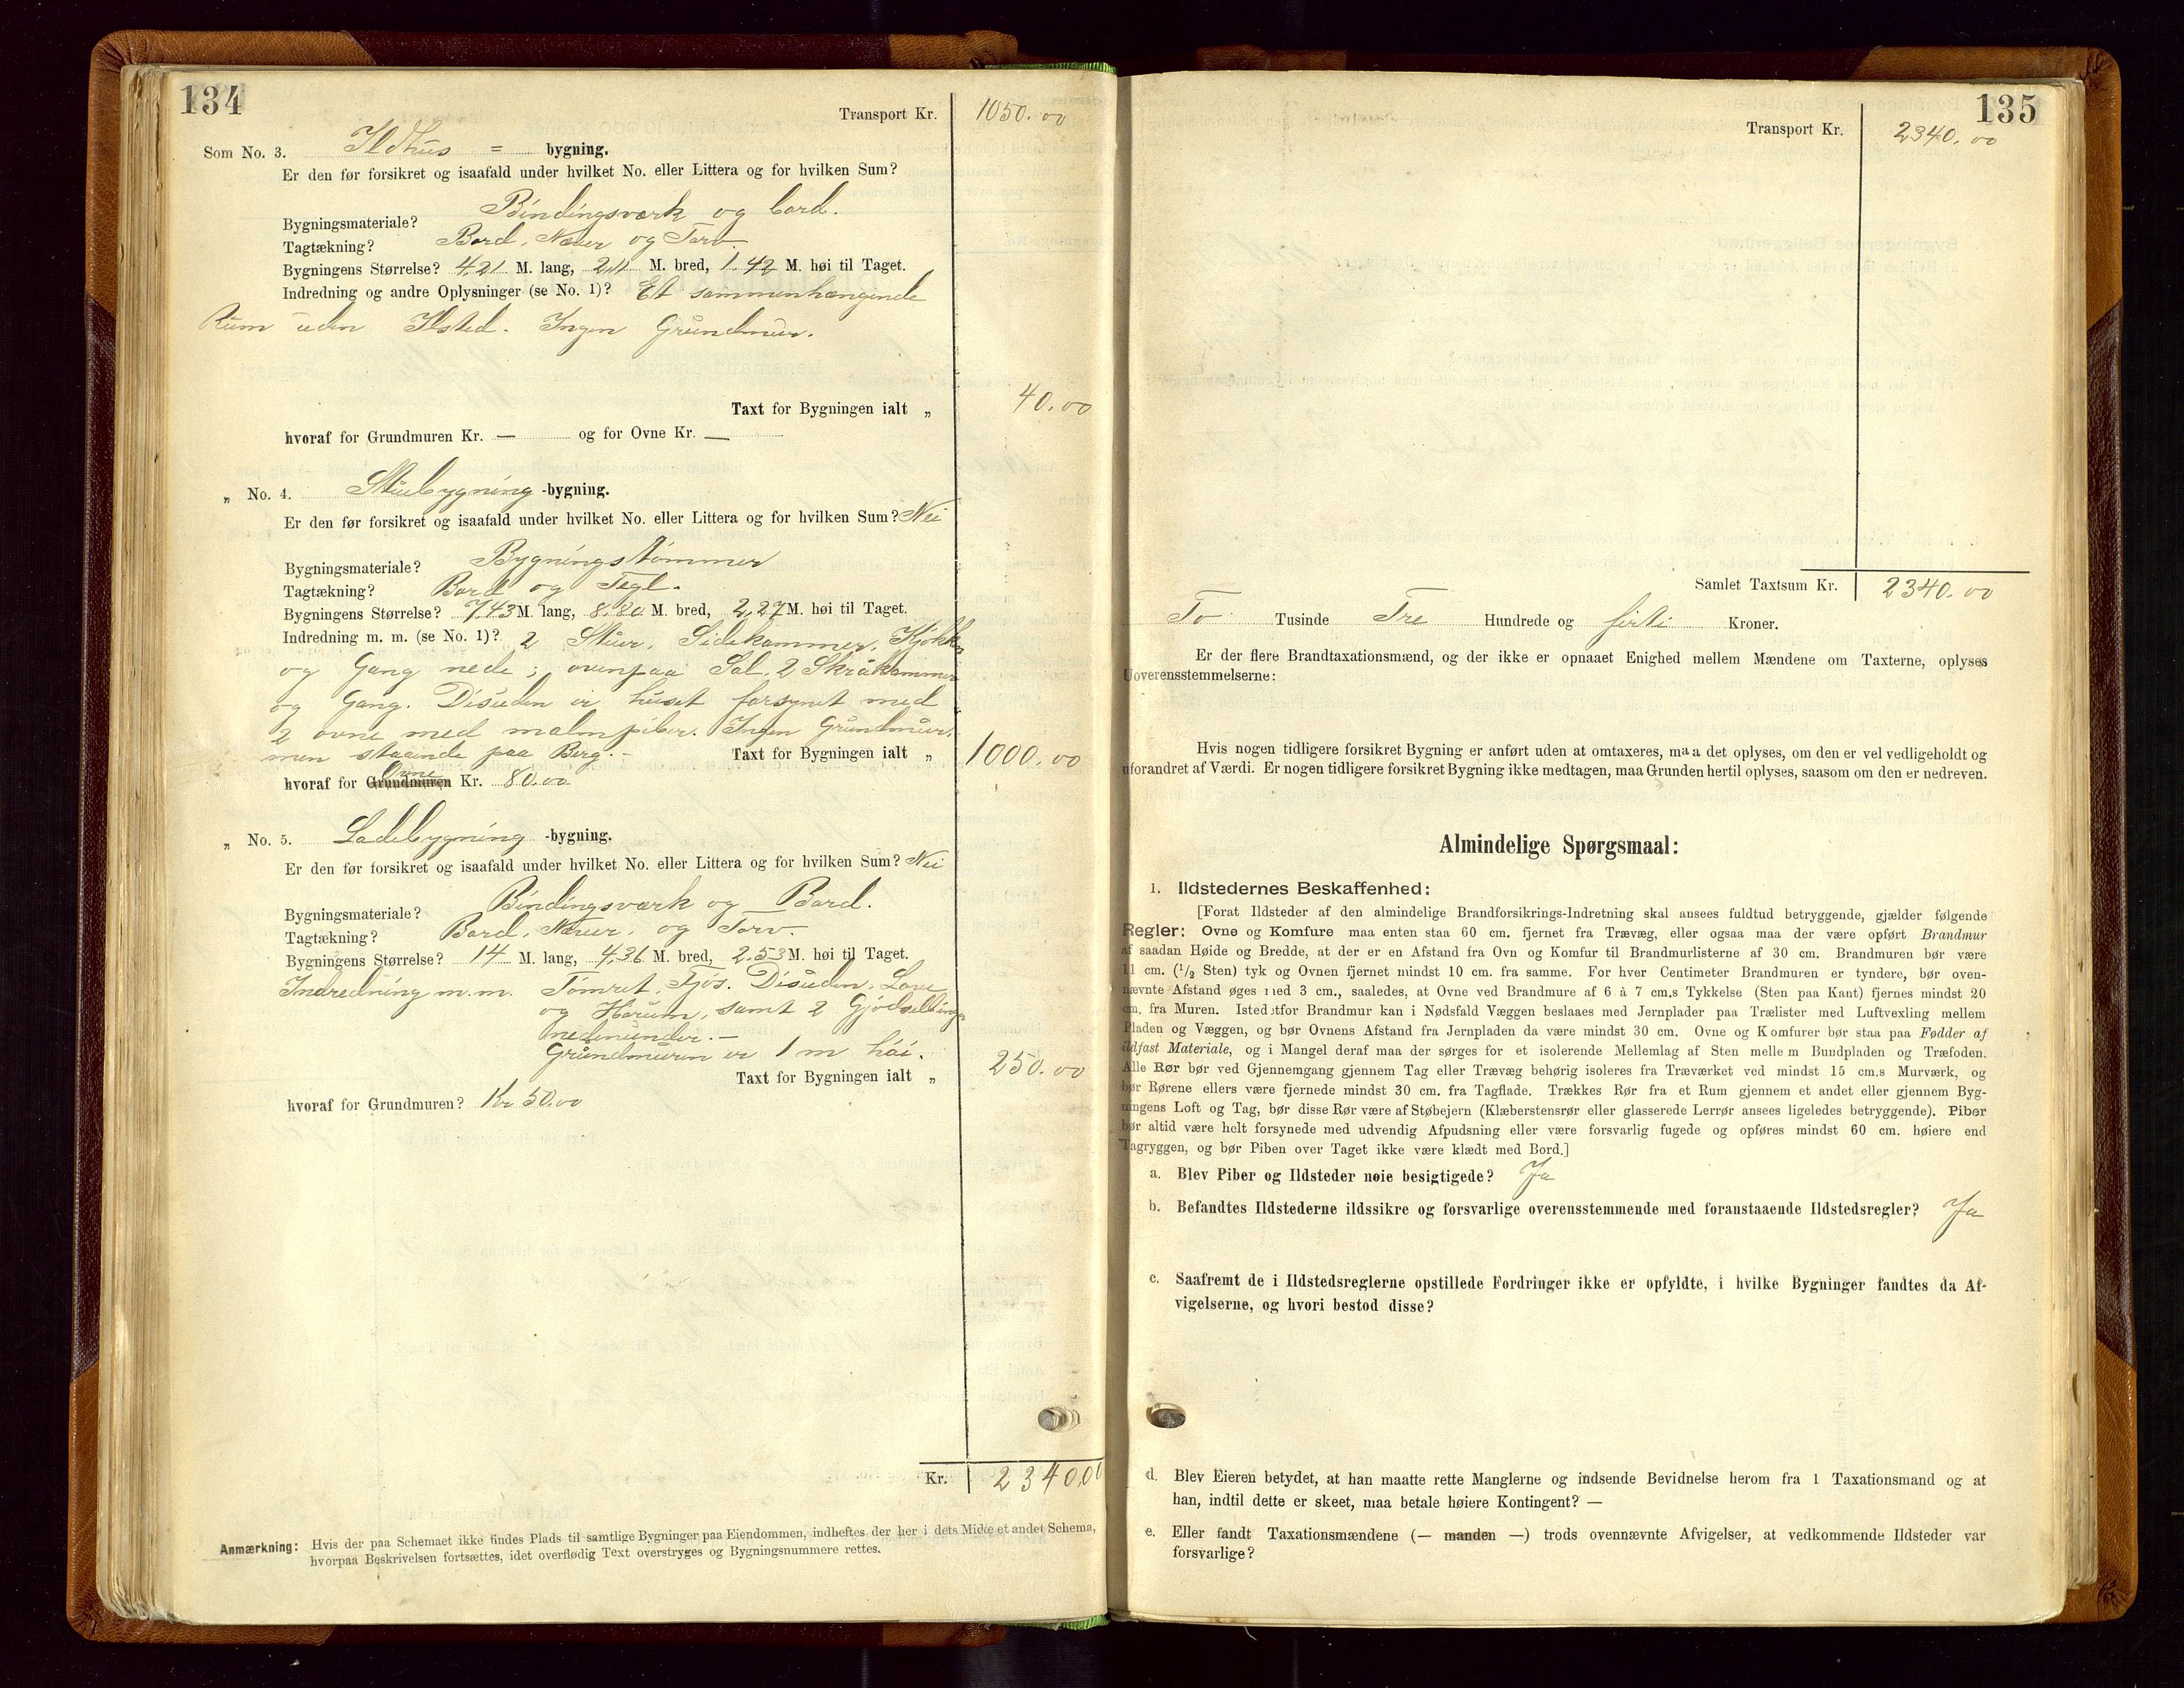 134
Transport Kr. 1050.00
Som No. 3. Ildhus = bygning.
Er den før forsikret og isaafald under hvilket No. eller Littera og for hvilken Sum?
Bygningsmateriale? Bindingsværk og bord.
Tagtækning? Bord, Næver og Torv.
Bygningens Størrelse? 4,21 M. lang, 2,11 M. bred, 1.42 M. høi til Taget.
Indredning og andre Oplysninger (se No. 1)? Et sammenhængende
Rum uden Ilsted. Ingen Grundmur.
Taxt for Bygningen ialt „ 40.00
hvoraf for Grundmuren Kr. — og for Ovne Kr. —
„ No. 4. Stuebygning -bygning.
Er den før forsikret og isaafald under hvilket No. eller Littera og for hvilken Sum? Nei
Bygningsmateriale? Bygningstømmer
Tagtækning? Bord og Tegl.
Bygningens Størrelse? 7,43 M. lang, 8.80 M. bred, 2,27 M. høi til Taget.
Indredning m. m. (se No. 1)? 2 Stuer, Sidekammer, Kjøkken
og Gang nede; ovenpaa Sal, 2 Skråkammer
og Gang. Disuden er huset forsynet med
2 ovne med malmpiber. Ingen Grundmur,
men staaende paa Berg. - Taxt for Bygningen ialt „ 1000.00
hvoraf for Grundmuren Ovne Kr. 80.00
„ No. 5. Ladebygning -bygning.
Er den før forsikret og isaafald under hvilket No. eller Littera og for hvilken Sum? Nei
Bygningsmateriale? Bindingsværk og Bord.
Tagtækning? Bord, Næver, og Torv.
Bygningens Størrelse? 14 M. lang, 4,36 M. bred, 2.53 M. høi til Taget.
Indredning m.m. Tømret Fjøs. Disuden, Love
og Hørum, samt 2 Gjødselbinger
nedenunder. -
Grundmuren er 1 m høi.
Taxt for Bygningen ialt „ 250.00
hvoraf for Grundmuren? Kr 50.00
Kr. 2340,00
Anmærkning: Hvis der paa Schemaet ikke findes Plads til samtlige Bygninger paa Eiendommen, indheftes der her i dets Midte et andet Schema,
hvorpaa Beskrivelsen fortsættes, idet overflødig Text overstryges og Bygningsnummere rettes.
135
Transport Kr. 2340.00
Samlet Taxtsum Kr. 2340.00
To Tusinde Tre Hundrede og firti Kroner.
Er der flere Brandtaxationsmænd, og der ikke er opnaaet Enighed mellem Mændene om Taxterne, oplyses
Uoverensstemmelserne:
Hvis nogen tidligere forsikret Bygning er anført uden at omtaxeres, maa det oplyses, om den er vel vedligeholdt og
uforandret af Værdi. Er nogen tidligere forsikret Bygning ikke medtagen, maa Grunden hertil oplyses, saasom om den er nedreven.
Almindelige Spørgsmaal:
1. Ildstedernes Beskaffenhed:
[Forat Ildsteder af den almindelige Brandforsikrings-Indretning skal ansees fuldtud betryggende, gjælder følgende
Regler: Ovne og Komfure maa enten staa 60 cm. fjernet fra Trævæg, eller ogsaa maa der være opført Brandmur
af saadan Høide og Bredde, at der er en Afstand fra Ovn og Komfur til Brandmurlisterne af 30 cm. Brandmuren bør være
11 cm. (1/2 Sten) tyk og Ovnen fjernet mindst 10 cm. fra samme. For hver Centimeter Brandmuren er tyndere, bør oven-
nævnte Afstand øges med 3 cm., saaledes, at Ovne ved Brandmure af 6 à 7 cm.s Tykkelse (Sten paa Kant) fjernes mindst 20
cm. fra Muren. Istedetfor Brandmur kan i Nødsfald Væggen beslaaes med Jernplader paa Trælister med Luftvexling mellem
Pladen og Væggen, og bør Ovnens Afstand fra Jernpladen da være mindst 30 cm. Ovne og Komfurer bør staa paa Fødder af
ildfast Materiale, og i Mangel deraf maa der sørges for et isolerende Mellemlag af Sten mellem Bundpladen og Træfoden.
Alle Rør bør ved Gjennemgang gjennem Tag eller Trævæg behørig isoleres fra Træværket ved mindst 15 cm.s Murværk, og
bør Rørene ellers være fjernede mindst 30 cm. fra Tagflade. Trækkes Rør fra et Rum gjennem et andet eller gjennem Byg-
ningens Loft og Tag, bør disse Rør være af Støbejern (Klæberstensrør eller glasserede Lerrør ansees ligeledes betryggende). Piber
bør altid være helt forsynede med udvendig Afpudsning eller være forsvarlig fugede og opføres mindst 60 cm. høiere end
Tagryggen, og bør Piben over Taget ikke være klædt med Bord.]
a. Blev Piber og Ildsteder nøie besigtigede? Ja
b. Befandtes Ildstederne ildssikre og forsvarlige overensstemmende med foranstaaende Ildstedsregler? Ja
c. Saafremt de i Ildstedsreglerne opstillede Fordringer ikke er opfyldte, i hvilke Bygninger fandtes da Af-
vigelserne, og hvori bestod disse?
d. Blev Eieren betydet, at han maatte rette Manglerne og indsende Bevidnelse herom fra 1 Taxationsmand og at
han, indtil dette er skeet, maa betale høiere Kontingent? —
e. Eller fandt Taxationsmændene (— manden —) trods ovennævnte Afvigelser, at vedkommende Ildsteder var
forsvarlige?